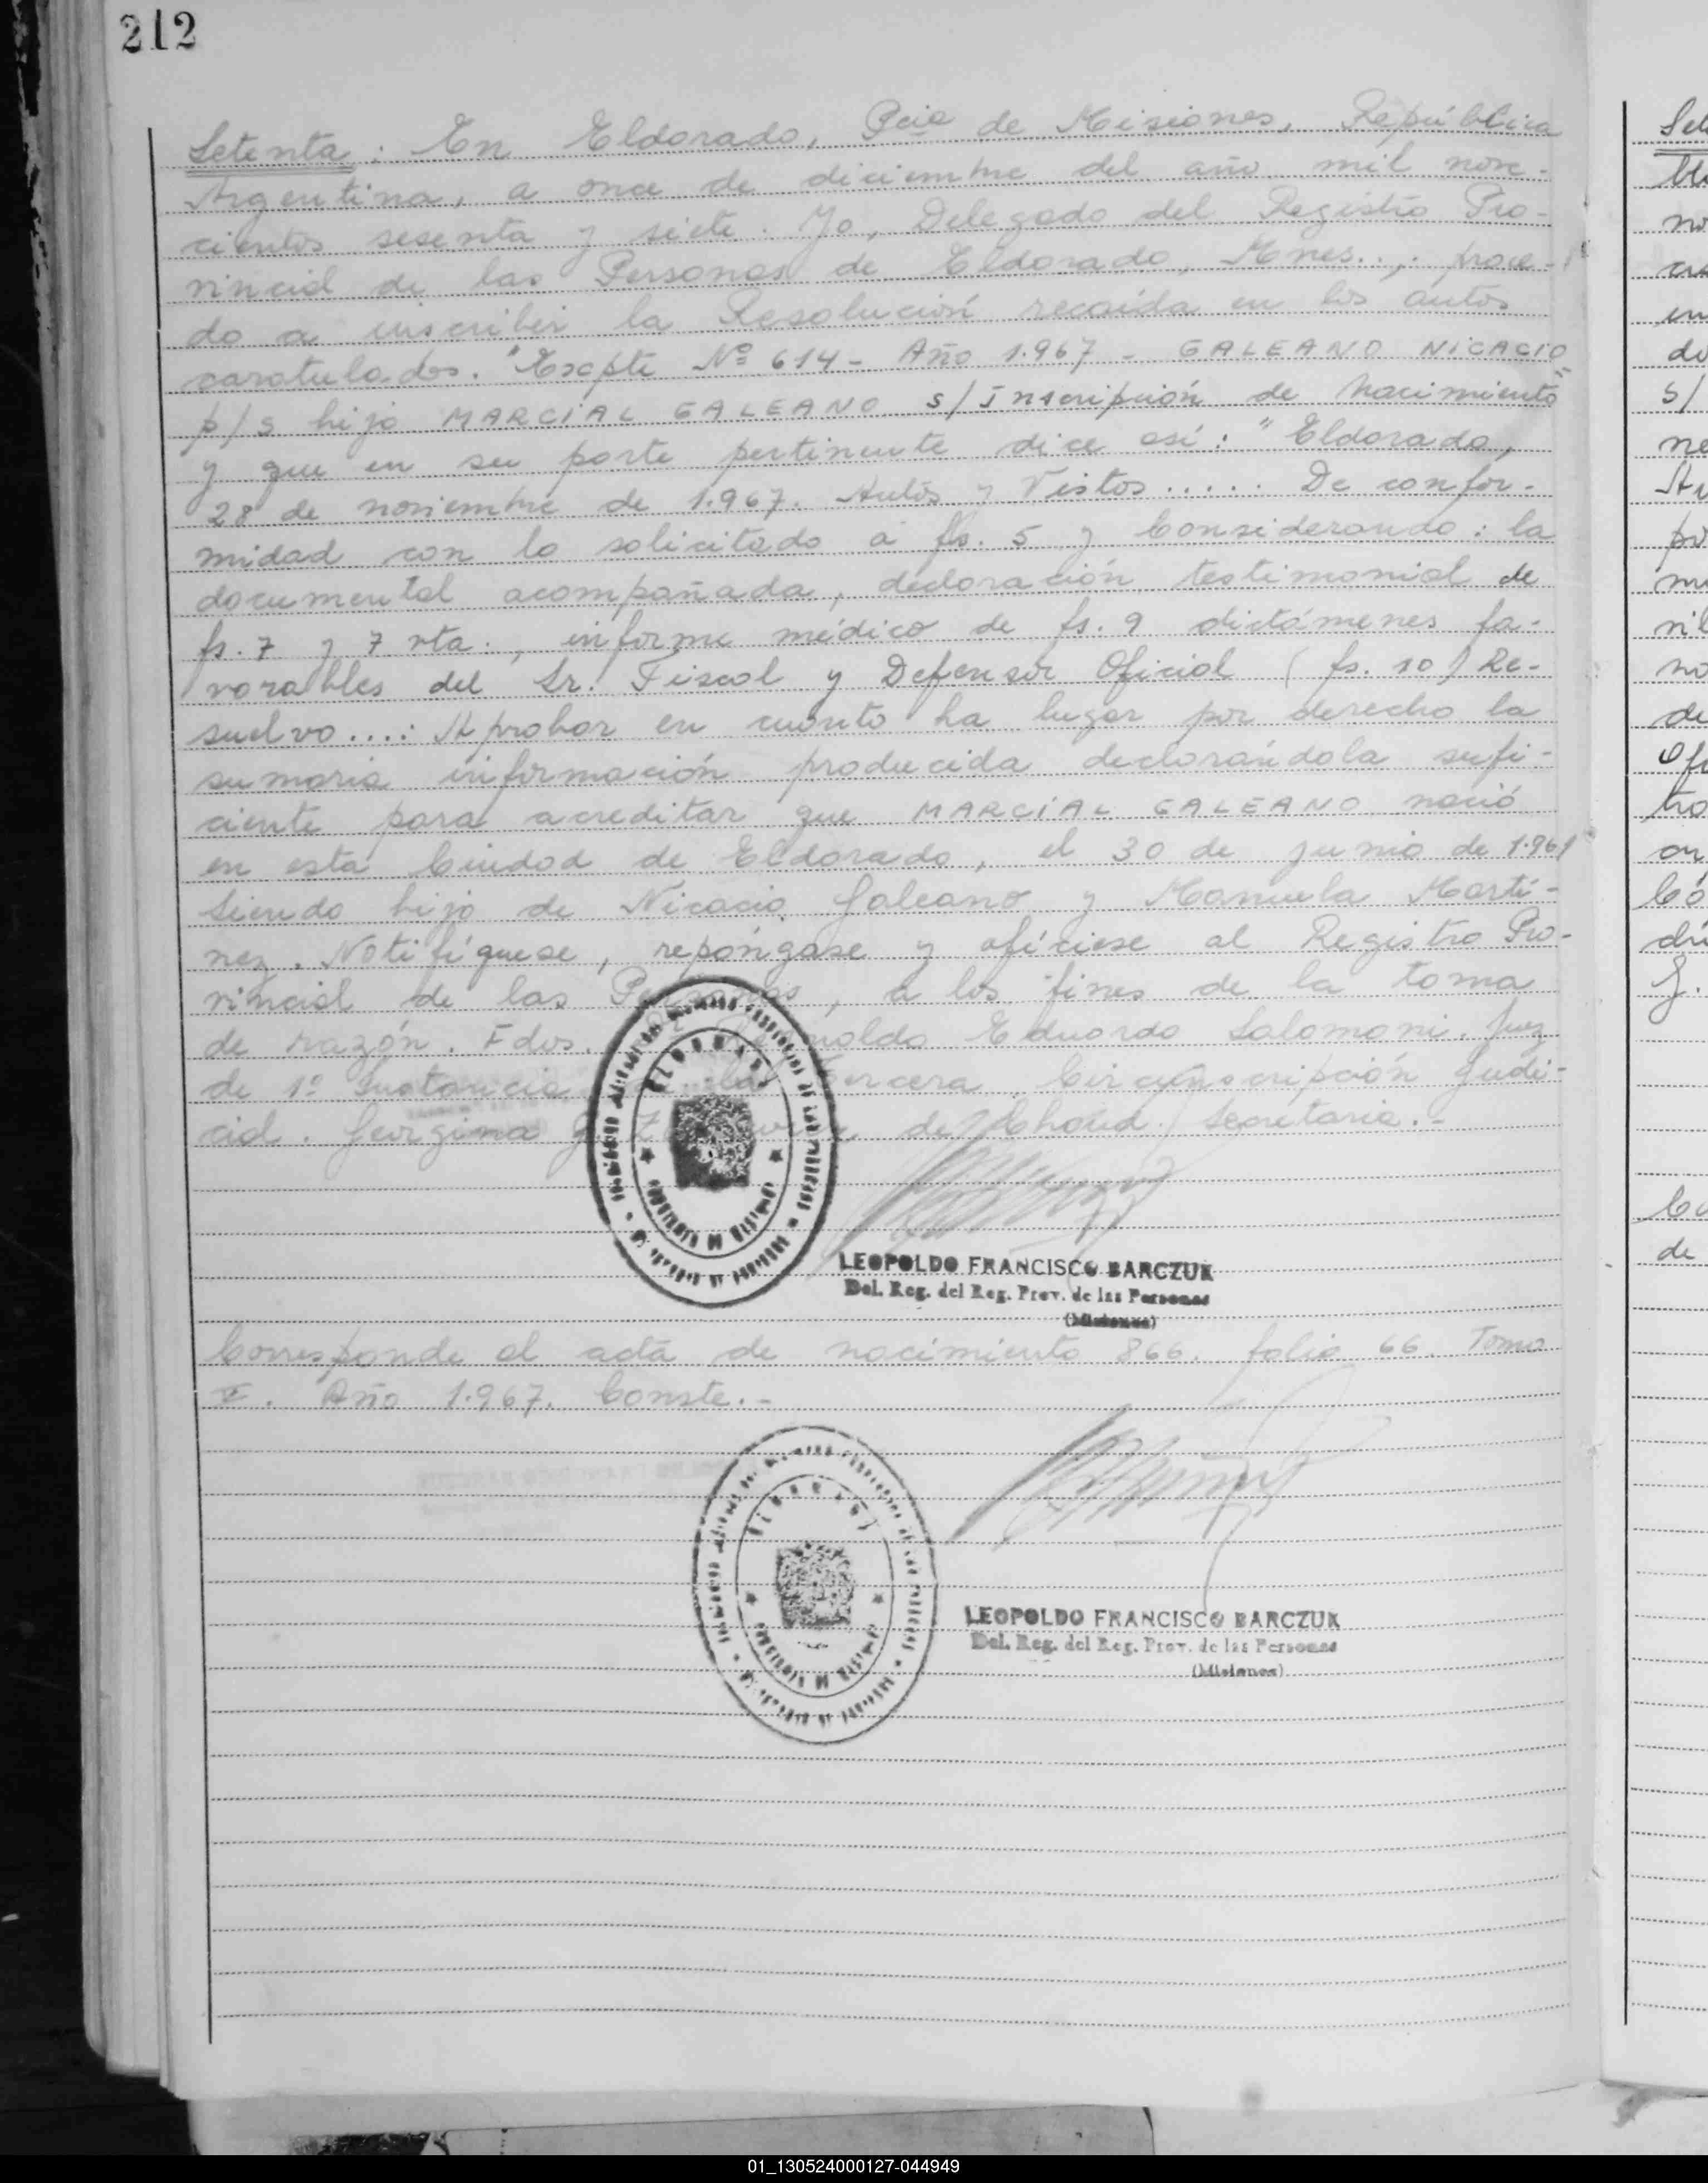 212
Setenta: En Eldorado, Pcia de Misiones, República
Argentina, a once de diciembre del año mil nove-
cientos sesenta y siete. Yo, Delegado del Registro Pro-
vincial de las Personas de Eldorado, Mnes.., proce-
do a inscribir la Resolución recaída en los autos
caratulados. "Expte Nº 614 - Año 1.967 - GALEANO NICACIO
p/s hijo MARCIAL GALEANO s/Inscripción de Nacimiento"
y que en su parte pertinente dice así: "Eldorado,
28 de noviembre de 1.967. Autos y Vistos..... De confor-
midad con lo solicitado a fs. 5 y Considerando: la
documental acompañada, declaración testimonial de
fs. 7 y 7 vta., informe médico de fs. 9 dictámenes fa-
vorables del Sr. Fiscal y Defensor Oficial (fs. 10) Re-
suelvo....: Aprobar en cuanto ha lugar por derecho la
sumaria información producida declarándola sufi-
ciente para acreditar que MARCIAL GALEANO nació
en esta Ciudad de Eldorado, el 30 de junio de 1.961
siendo hijo de Nicacio Galeano y Manuela Martí-
nez. Notifíquese, repóngase y ofíciese al Registro Pro-
vincial de las Personas, a los fines de la toma
de razón. Fdos. Dr Eduardo Salomoni. Juez
de 1º Instancia de la Tercera Circunscripción Judi-
cial. Georgina de Secretaria.-
ELDORADO
LEOPOLDO FRANCISCO BARCZUK
Del. Reg. del Reg. Prov. de las Personas
(Misiones)
Corresponde al acta de nacimiento 866. folio 66. Tomo
V. Año 1.967. Conste.-
ELDORADO
LEOPOLDO FRANCISCO BARCZUK
Del. Reg. del Reg. Prov. de las Personas
(Misiones)
01_130524000127-044949